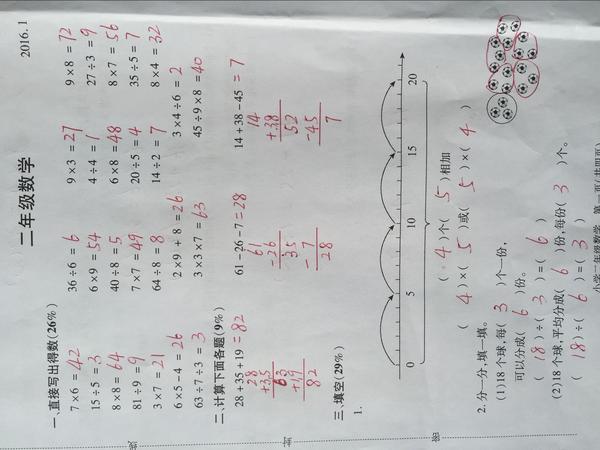 二年级数学 2016.1
一、直接写出得数(26%)
7×6=42 36÷6=6 9×3=27 9×8=72
15÷5=3 6×9=54 4÷4=1 27÷3=9
8×8=64 40÷8=5 6×8=48 8×7=56
81÷9=9 7×7=49 20÷5=4 35÷5=7
3×7=21 64÷8=8 14÷2=7 8×4=32
6×5-4=26 2×9+8=26 3×4÷6=2
63÷7÷3=3 3×3×7=63 45÷9×8=40
二、计算下面各题(9%)
28+35+19=82 61-26-7=28 14+38-45=7
28 61 14
+35 -26 +38
63 35 52
+19 -7 -45
82 28 7
三、填空(29%)
1.
0 5 10 15 20
(4)个(5)相加
(4)×(5)或(5)×(4)
2.分一分,填一填。
(1)18个球,每(3)个一份,
可以分成(6)份。
(18)÷(3)=(6)
(2)18个球,平均分成(6)份,每份(3)个。
(18)÷(6)=(3)
小学二年级数学 第一页(共四页)
线
封
密